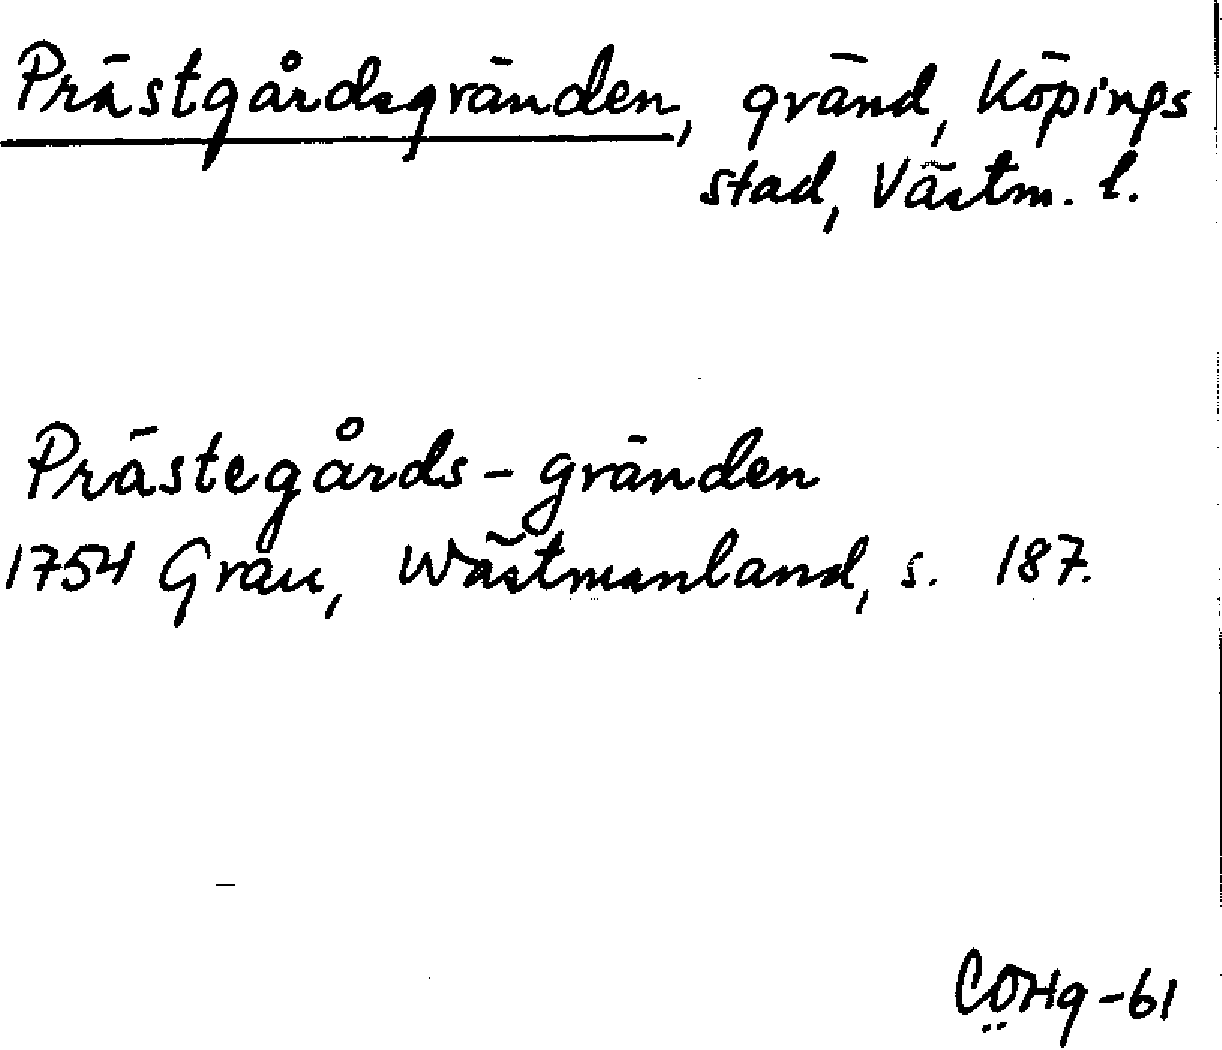 Prästgårdsgränden, gränd, Köpings
stad, Västm. l.
Prästegårds-gränden
1754 Grau, Wästmanland, s. 187.
CÖHg-61